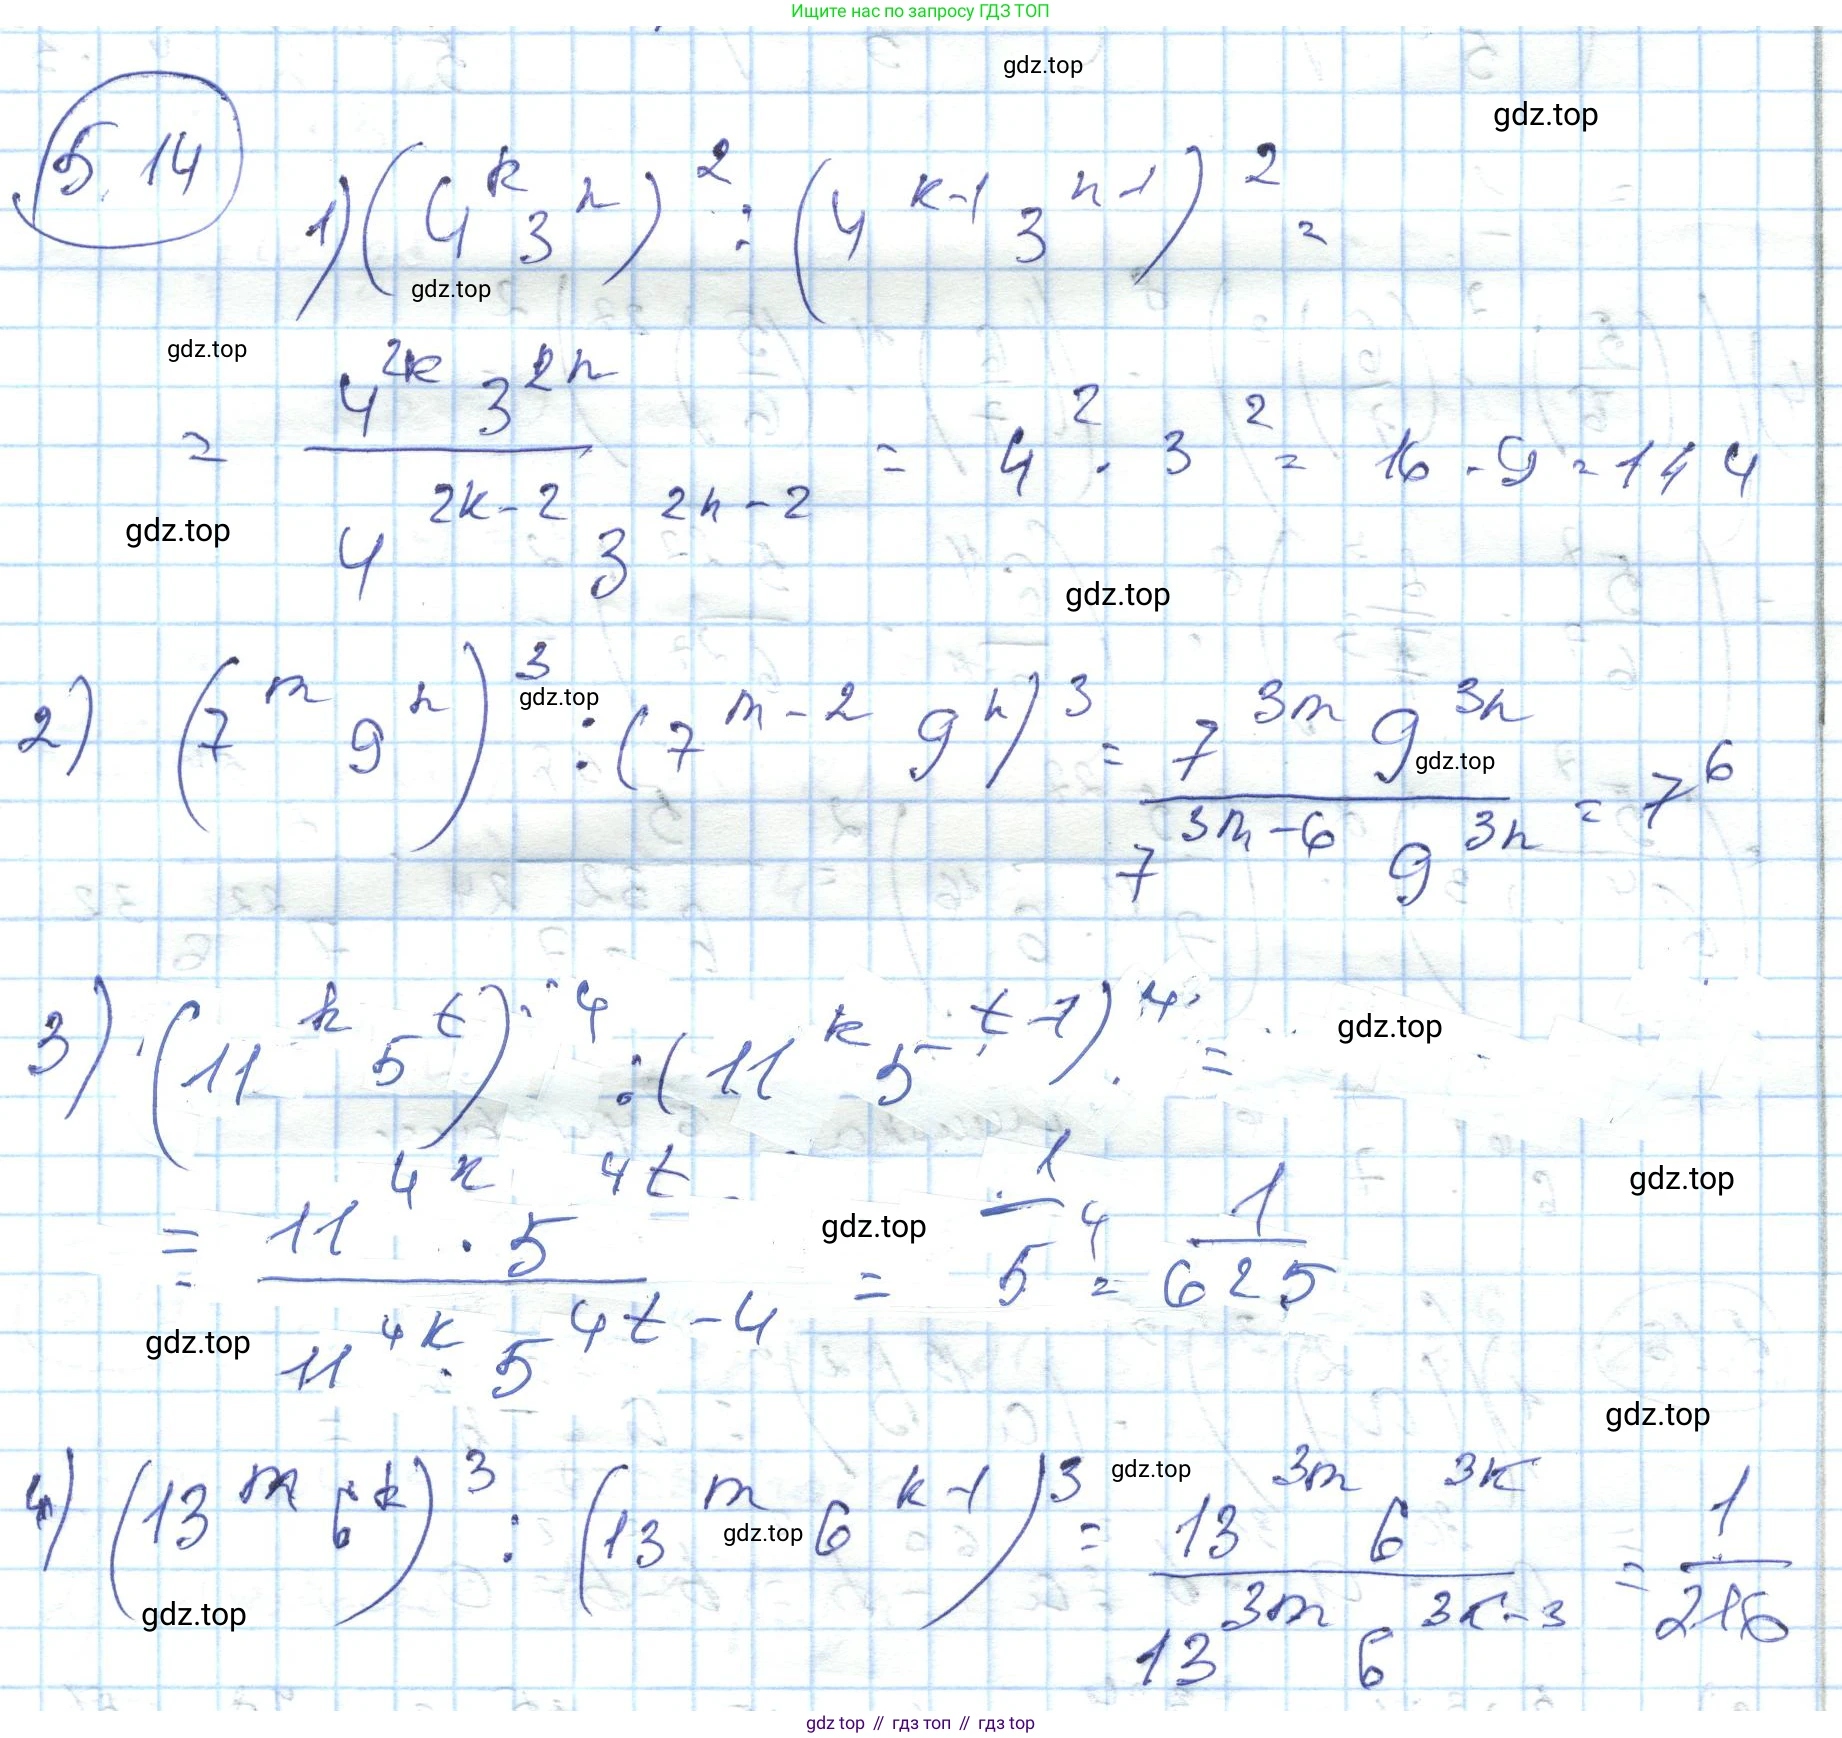 Ищите нас по запросу ГДЗ ТОП
gdz.top
gdz.top
5.14
1) (4^k 3^n)^2 : (4^(k-1) 3^(n-1))^2 =
gdz.top
gdz.top
= (4^(2k) 3^(2n)) / (4^(2k-2) 3^(2n-2)) = 4^2 · 3^2 = 16 · 9 = 144
gdz.top
gdz.top
2) (7^m 9^n)^3 : (7^(m-2) 9^n)^3 = (7^(3m) 9^(3n)) / (7^(3m-6) 9^(3n)) = 7^6
gdz.top
gdz.top
3) (11^k 5^t)^4 : (11^k 5^(t-1))^4 =
gdz.top
gdz.top
= (11^(4k) · 5^(4t)) / (11^(4k) · 5^(4t-4)) = 1 / 5^4 = 1 / 625
gdz.top
gdz.top
gdz.top
4) (13^m 6^k)^3 : (13^m 6^(k-1))^3 = (13^(3m) 6^(3k)) / (13^(3m) 6^(3k-3)) = 1 / 216
gdz.top
gdz.top
gdz.top
gdz top // гдз топ // гдз top